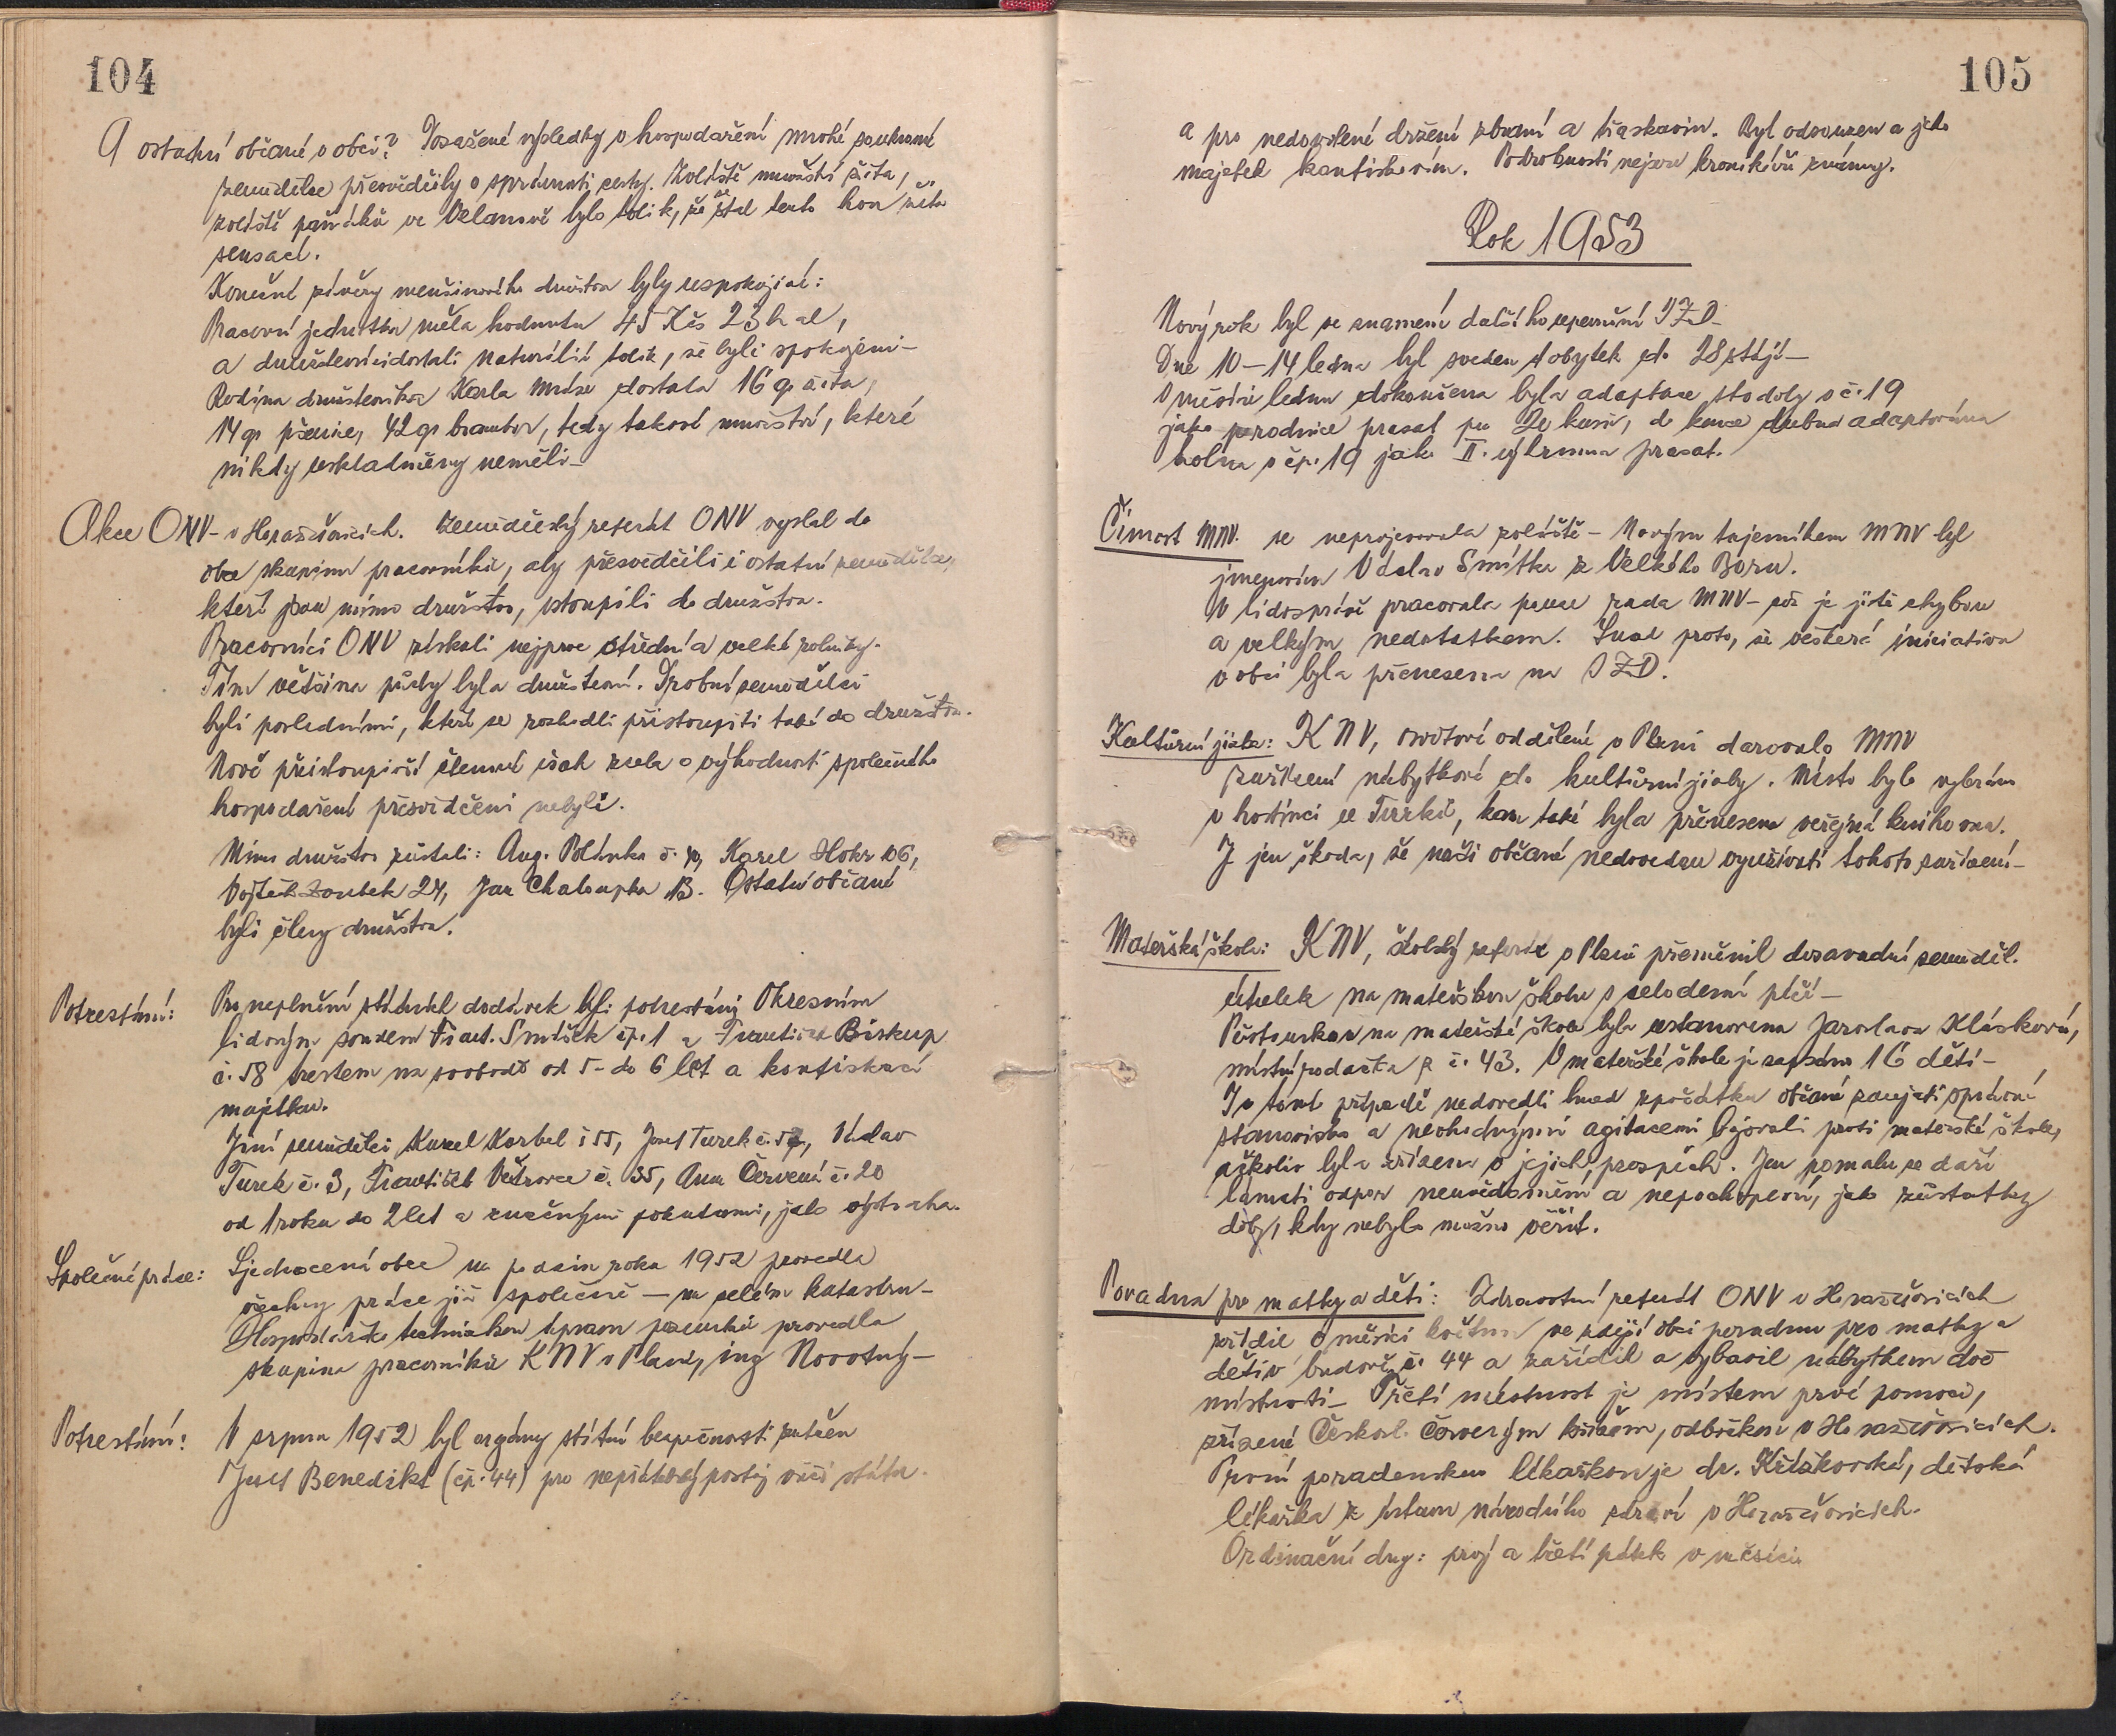 104
A ostatní občané v obci? Dosažené výsledky v hospodaření mnohé soukromé
zemědělce přesvědčily o správnosti cesty. Zvláště množství žita,
zvláště paňáků ve Velanově bylo tolik, že stal tento hon žita
sensací.
Konečné závěry menšinového družstva byly uspokojivé:
Pracovní jednotka měla hodnotu 45 Kčs 23 hal,
a družstevníci dostali naturálií tolik, že byli spokojeni-
Rodina družstevníka Karla Mráze dostala 16 q žita,
14 q pšenice, 42 q brambor, tedy takové množství, které
nikdy uskladněny neměli-
Akce ONV- v Horažďovicích. Zemědělský referát ONV vyslal do
obce skupinu pracovníků, aby přesvědčili i ostatní zemědělce,
kteří jsou mimo družstvo, vstoupili do družstva.
Pracovníci ONV získali nejprve střední a velké rolníky.
Tím většina půdy byla družstevní. Drobní zemědělci
byli posledními, kteří se rozhodli přistoupiti také do družstva.
Nově přistoupivší členové však zcela o výhodnosti společného
hospodaření přesvědčeni nebyli.
Mimo družstvo zůstali: Aug. Polánka č. Karel Hokr 106,
Vojtěch Zoubek 24, Jan Chaloupka 13. Ostatní občané
byli členy družstva.
Potrestání: Pro neplnění státních dodávek byli potrestáni Okresním
lidovým soudem Frant. Smíšek čp. 1 a František Biskup
č. 58 trestem na svobodě od 5- do 6 let a konfiskací
majetku.
Jiní zemědělci Karel Korbel č 55, Josef Turek č. Václav
Turek č. 3, František Větrovec č. 35, Anna Červená č. 20
od 1 roku do 2 let a značnými pokutami, jako výstraha.
Společné práce: Sjednocená obec na podzim roku 1952 provedla
všechny práce již společně — na celém katastru-
Hospodářsko technickou úpravu pozemků provedla
skupina pracovníků KNV v Plzni, ing Novotný-
Potrestání: V srpnu 1952 byl orgány státní bezpečnosti zatčen
Josef Benedikt (čp. 44) pro nepřátelský postoj vůči státu.
105
a pro nedovolené držení zbraní a třaskavin. Byl odsouzen a jeho
majetek konfiskován. Podrobnosti nejsou kronikáři známy.
Rok 1953
Nový rok byl ve znamení dalšího upevnění JZD-
Dne 10-14 ledna byl sveden dobytek do 28 stájí-
V měsíci lednu dokončena byla adaptace stodoly v č. 19
jako porodnice prasat pro 20 kusů, do konce dubna adaptována
kolna v čp. 19 jako II. výkrmna prasat.
Činnost MNV. se neprojevovala zvláště- Novým tajemníkem MNV byl
jmenován Václav Smitka z Velkého Boru.
V lidosprávě pracovala pouze rada MNV- což je jistě chybou
a velkým nedostatkem. Snad proto, že veškerá iniciativa
v obci byla přenesena na JZD.
Kulturní jizba: KNV, osvětové oddělení v Plzni darovalo MNV
zařízení nábytkové do kulturní jizby. Místo bylo vybráno
v hostinci u Turků, kam také byla přenesena veřejná knihovna.
Je jen škoda, že naši občané nedovedou využívati tohoto zařízení-
Mateřská škola: KNV, školský referát v Plzni přeměnil dosavadní zeměděl.
útulek na mateřskou školu s celodenní péčí-
Pěstounkou na mateřské škole byla ustanovena Jaroslava Kláskova,
místní rodačka z č. 43. V mateřské škole je zapsáno 16 dětí-
I v tomto případě nedovedli hned zpočátku občané zaujati správné
stanovisko a neohednými agitacemi bojovali proti mateřské škole,
ačkoliv byla zřízena v jejich prospěch. Jen pomalu se daří
lámati odpor neuvědomění a nepochopení, jako zůstatky
doby, kdy nebylo možno věřit.
Poradna pro matky a děti: Zdravotní referát ONV v Horažďovicích
zřídil v měsíci květnu ve zdejší obci poradnu pro matky a
děti v budově č. 44 a zařídil a vybavil nábytkem dvě
místnosti- Třetí místnost je místem prvé pomoci,
zřízené Českosl. Červeným křížem, odbočkou v Horažďovicích.
První poradenskou lékařkou je dr. Křížkovská, dětská
lékařka z ústavu národního zdraví v Horažďovicích.
Ordinační dny: prvý a třetí pátek v měsíci